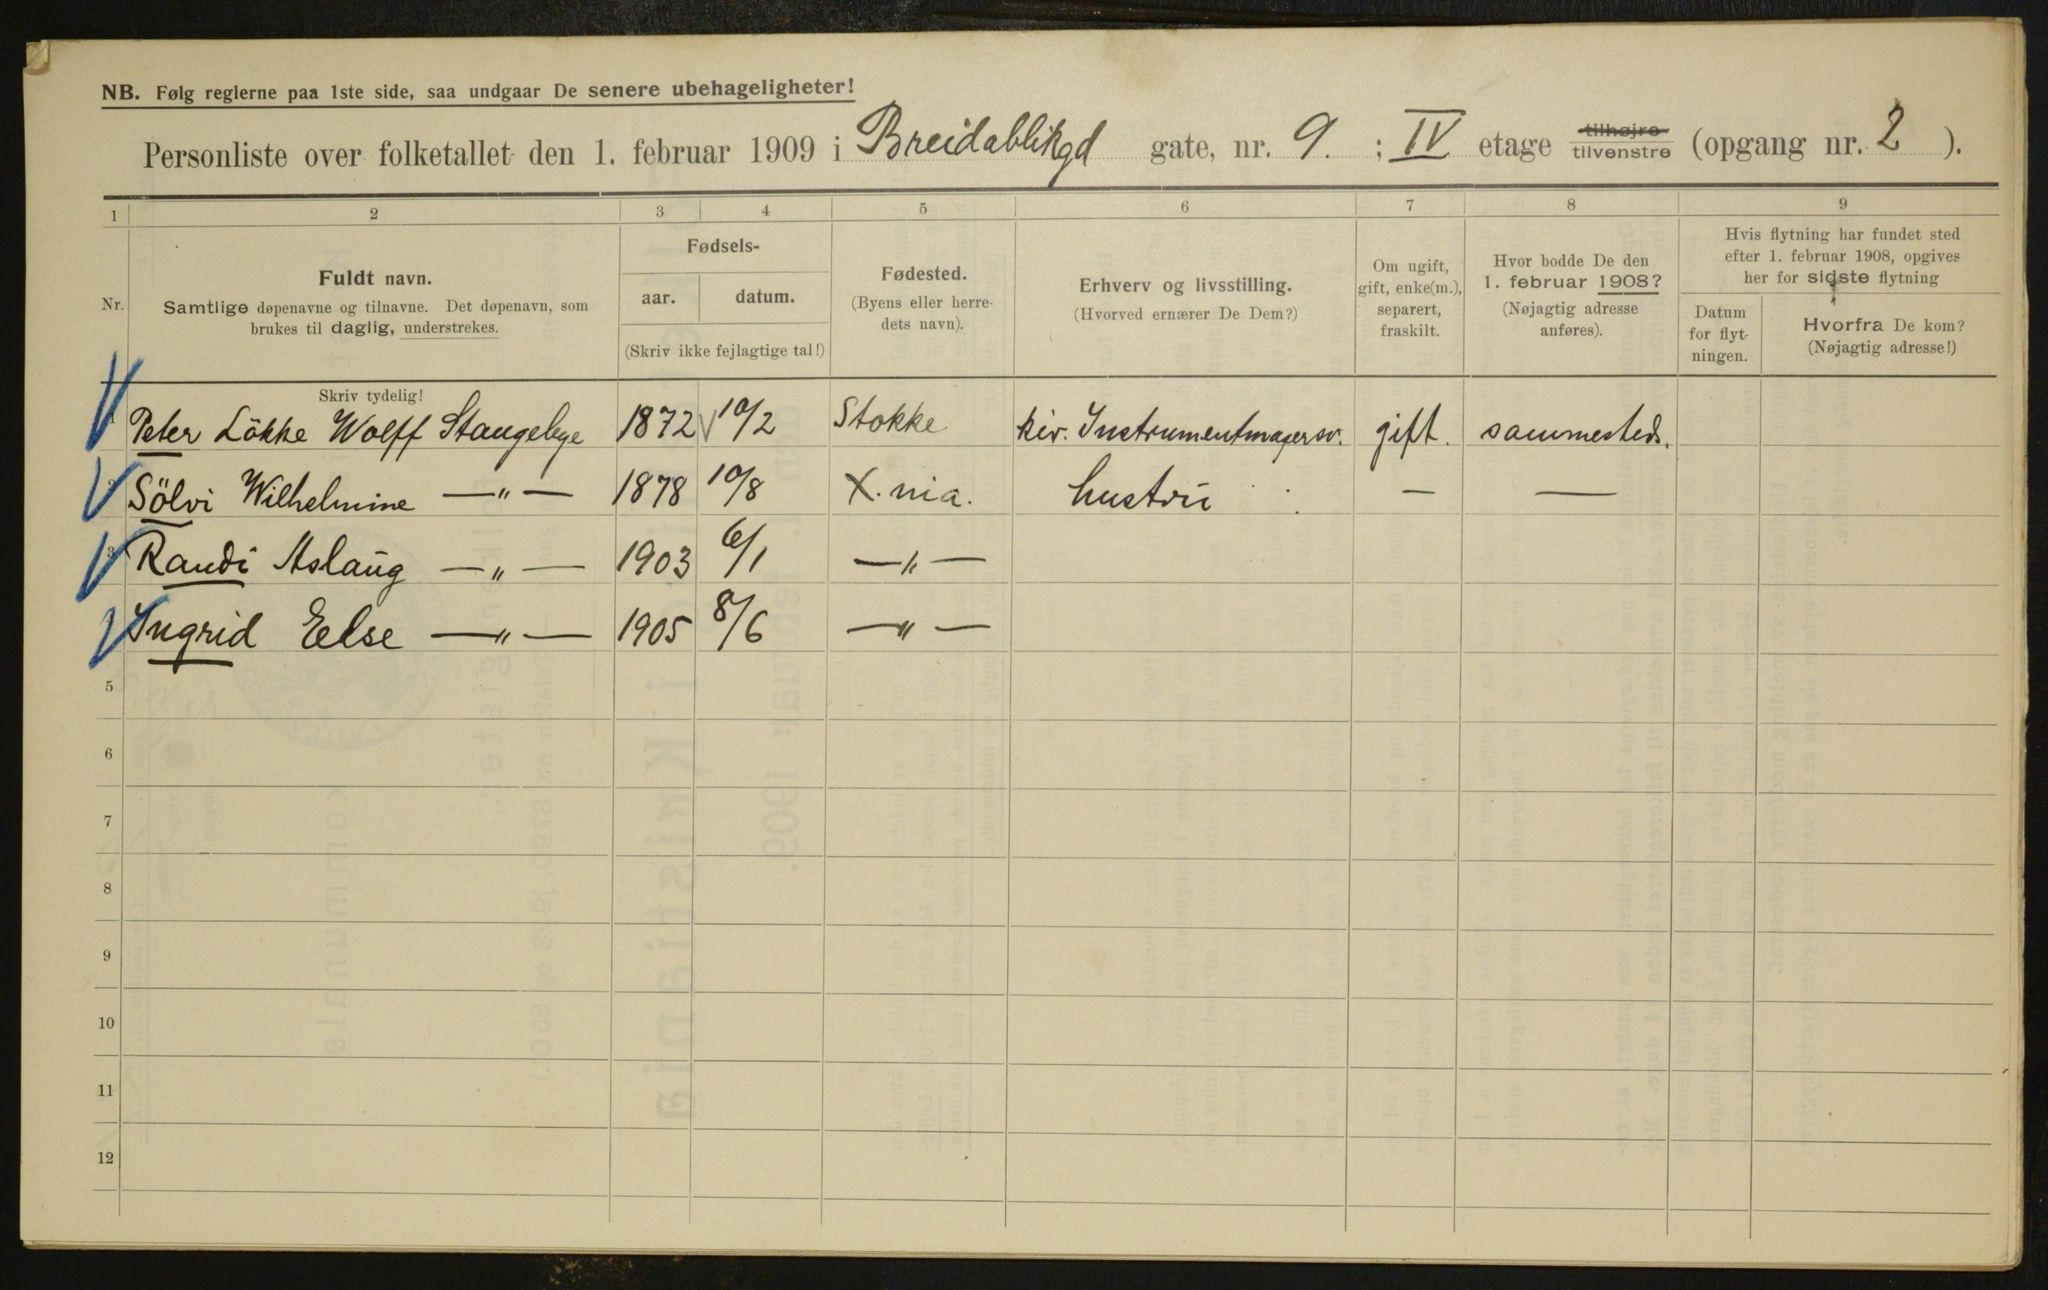 NB. Følg reglerne paa 1ste side, saa undgaar De senere ubehageligheter!
Personliste over folketallet den 1. februar 1909 i Breidablikgd gate, nr. 9. ; IV etage tilhøjre tilvenstre (opgang nr. 2 ).
1 2 3 4 5 6 7 8 9
Nr. Fuldt navn. Samtlige døpenavne og tilnavne. Det døpenavn, som brukes til daglig, understrekes.
Fødsels- aar. datum. (Skriv ikke fejlagtige tal!)
Fødested. (Byens eller herredets navn).
Erhverv og livsstilling. (Hvorved ernærer De Dem?)
Om ugift, gift, enke(m.), separert, fraskilt.
Hvor bodde De den 1. februar 1908? (Nøjagtig adresse anføres).
Hvis flytning har fundet sted efter 1. februar 1908, opgives her for sidste flytning
Datum for flytningen. Hvorfra De kom? (Nøjagtig adresse!)
Skriv tydelig!
1 Peter Lökke Wolff Stangebye 1872 10/2 Stokke kir. Instrumentmagersv. gift. sammesteds.
2 Sölvi Wilhelmine —"— 1878 10/8 X.nia. hustru — —
3 Randi Aslaug —"— 1903 6/1 —"—
Ingrid Eelse —"— 1905 8/6 —"—
5
6
7
8
9
10
11
12